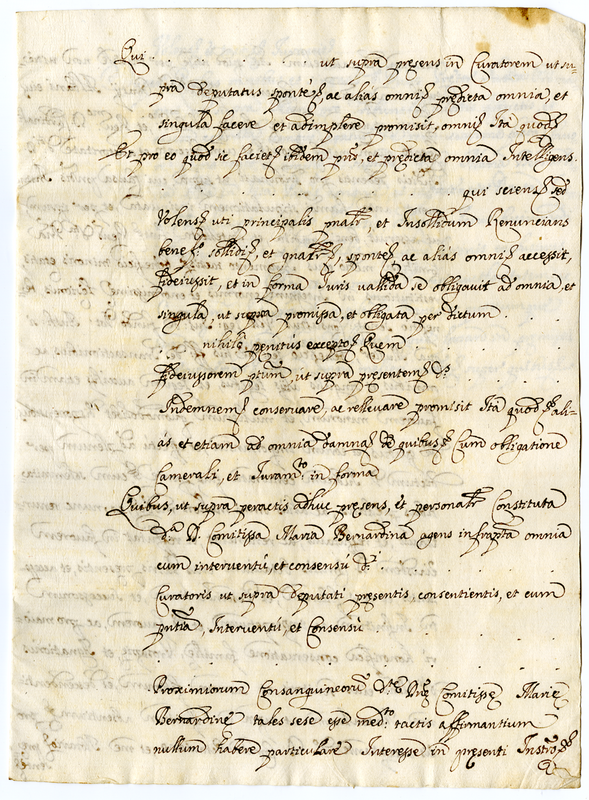 Qui . . . . . ut supra pręsens in Curatorem ut su=
pra deputatus spontè ac alias omni prędicta omnia, et
singula facere et adimplere promisit, omni Ita quod
Et pro eo quod sic faciet ibidem pns, et prędicta omnia Intelligens.
. . . . qui sciens sed
Volens uti principalis pnalr, et Insolidum Renuncians
benef. solidi, et qnalr, spontè ac alias omni accessit,
fideiussit, et in forma Iuris vallida se obligavit ad omnia, et
singula, ut supra promissa, et obligata per dictum . . .
. . nihilo penitus excepto Quem . . . .
fideiussorem ptum, ut supra presentem d.
Indemnem conservare, ac rellevare promisit Ità quod ali=
às et etiam de omnia damna de quibus Cum obligatione
Camerali, et Iuram.to in forma
Quibus, ut supra peractis adhuc pręsens, et personalr Constituta
d.a D. Comitissa Maria Bernardina agens infrapta omnia
cum interventu, et consensu d.i . . . .
Curatoris ut supra deputati pręsentis, consentientis, et cum
pntia, Interventu, et Consensu . . . .
. . . . .
Proximiorum Consanguineorum d.tę Dnę Comitissę Marię
Bernardinę tales sese esse med.to tactis affirmantium
nullum habere particulare Interesse in presenti Instro